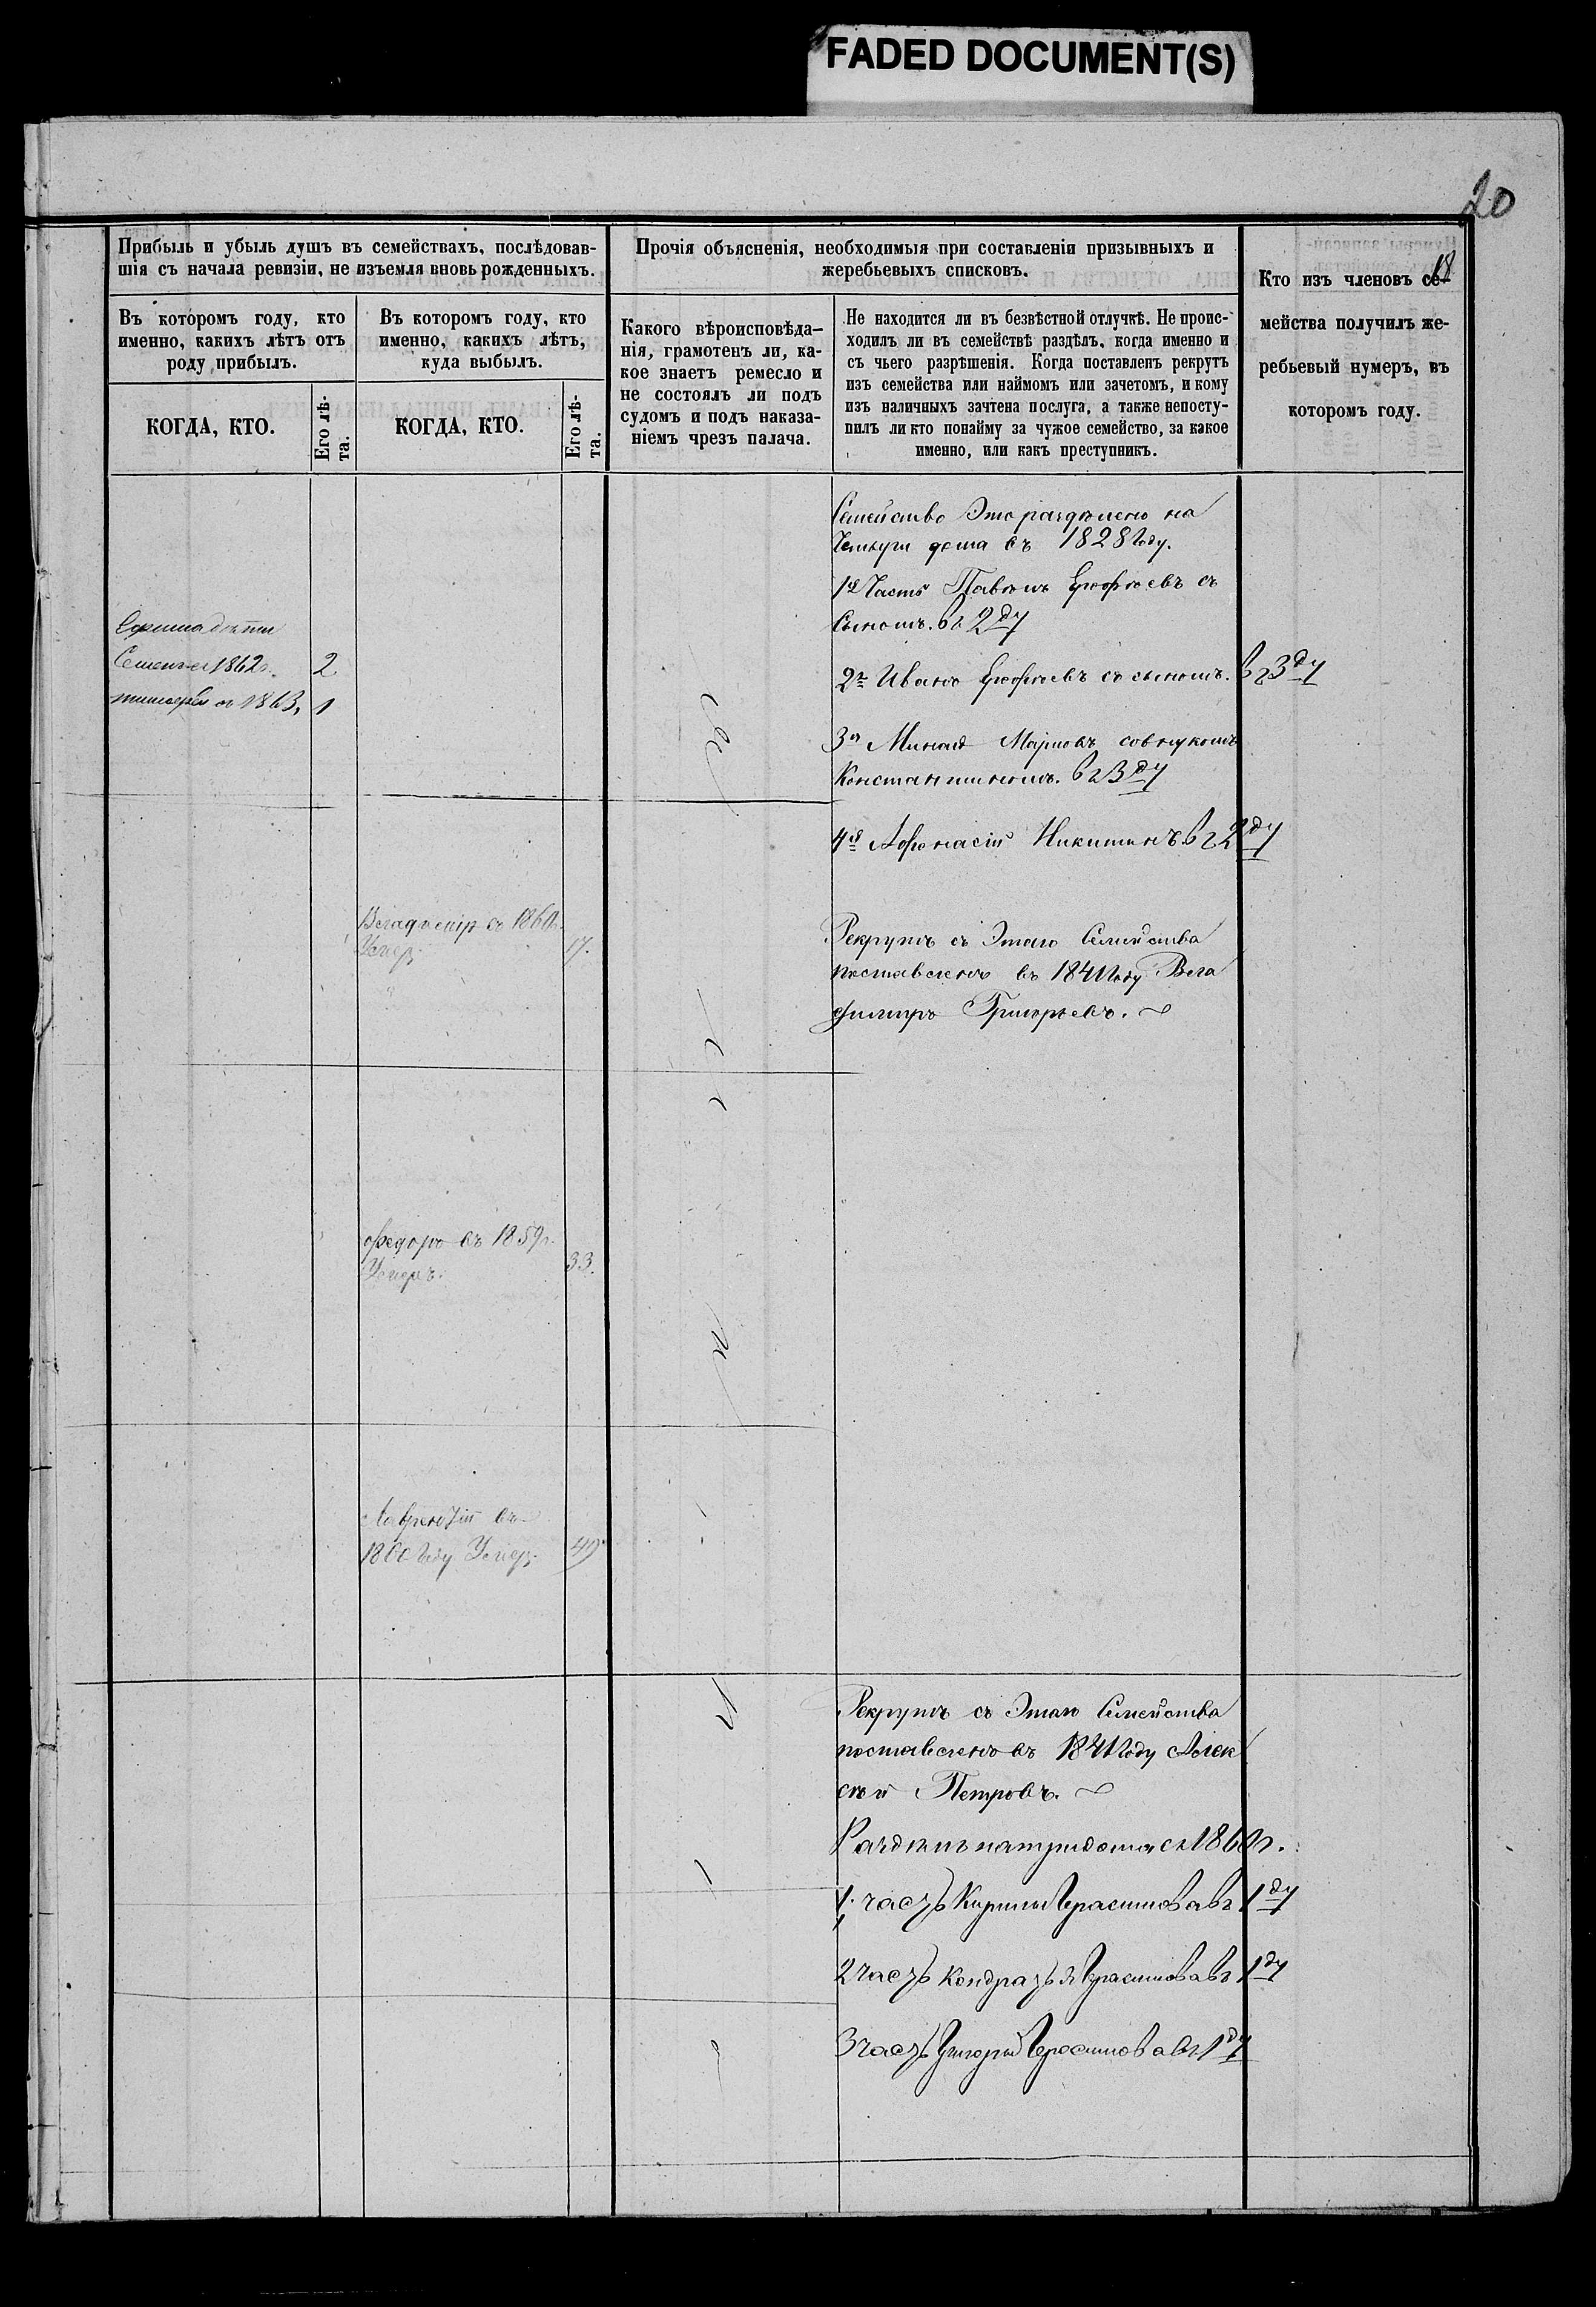 FADED DOCUMENT(S)
20
18
Прибыль и убыль душъ въ семействахъ, послѣдовав-
шія съ начала ревизіи, не изъемля вновь рожденныхъ.
Прочія объясненія, необходимыя при составленіи призывныхъ и
жеребьевыхъ списковъ.
Кто изъ членовъ се-
мейства получилъ же-
ребьевый нумеръ, въ
которомъ году.
Въ которомъ году, кто
именно, какихъ лѣтъ отъ
роду прибылъ.
Въ которомъ году, кто
именно, какихъ лѣтъ,
куда выбылъ.
Какого вѣроисповѣда-
нія, грамотенъ ли, ка-
кое знаетъ ремесло и
не состоялъ ли подъ
судомъ и подъ наказа-
ніемъ чрезъ палача.
Не находится ли въ безвѣстной отлучкѣ. Не проис-
ходилъ ли въ семействѣ раздѣлъ, когда именно и
съ чьего разрѣшенія. Когда поставленъ рекрутъ
изъ семейства или наймомъ или зачетомъ, и кому
изъ наличныхъ зачтена послуга, а также непосту-
пилъ ли кто понайму за чужое семейство, за какое
именно, или какъ преступникъ.
КОГДА, КТО.
Его лѣ-
та.
КОГДА, КТО.
Его лѣ-
та.
Семейство Это раздѣлено на
дома въ 1828 году.
1я Часть Павелъ съ
Сыномъ. въ 2 ду
дѣти
1862г. 2
1863, 1
2я Иванъ съ сыномъ. въ 3 ду
3я Минай Марковъ совнукомъ
Константиномъ. въ 3 ду
4я Афонасій Никитинъ въ 2 ду
въ 1860г.
Умеръ. 17.
Рекрутъ съ Этаго Семейства
поставленъ въ 1841 году
Григорьевъ.
Федоръ въ 1859г.
Умеръ. 33.
Лаврентій въ
1860 году Умеръ. 49
Рекрутъ съ Этаго Семейства
поставленъ въ 1841 году Алек
сѣй Петровъ.
натридома съ 1860г.
1. часть Кирила Герасимова въ 1 ду
2 часть Кондратья Герасимова въ 1 ду
3 часть Григорья Герасимова въ 1 ду